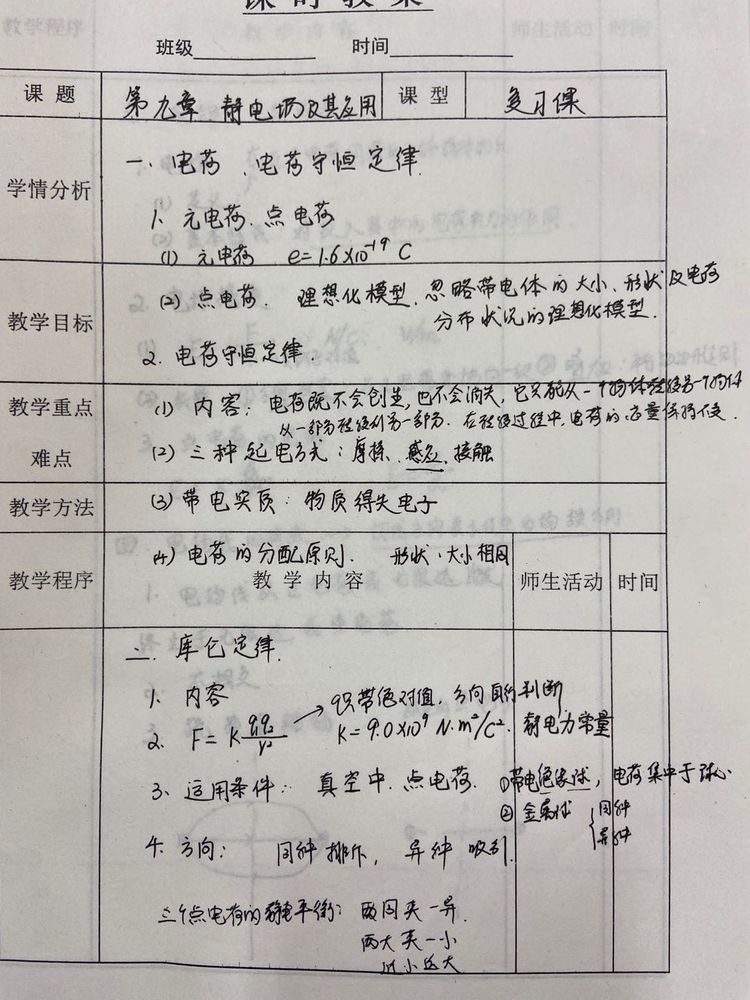 课时教案
班级 时间
课题 第九章 静电场及其应用 课型 复习课
学情分析
一、电荷、电荷守恒定律.
1. 元电荷、点电荷
(1) 元电荷 e=1.6×10⁻¹⁹ C
教学目标
(2) 点电荷. 理想化模型. 忽略带电体的大小、形状及电荷
分布状况的理想化模型.
2. 电荷守恒定律.
教学重点
难点
(1) 内容: 电荷既不会创生, 也不会消失, 它只能从一个物体转移另一个物体
从一部分转移到另一部分. 在转移过程中, 电荷的总量保持不变.
(2) 三种起电方式: 摩擦、感应、接触
教学方法
(3) 带电实质: 物质得失电子
(4) 电荷的分配原则. 形状、大小相同
教学程序 教学内容 师生活动 时间
二. 库仑定律.
1. 内容
→ q只带绝对值, 方向自行判断
2. F=K q₁q₂/r² K=9.0×10⁹ N·m²/C². 静电力常量
3. 适用条件: 真空中、点电荷. ①带电绝缘球, 电荷集中于球心
②金属球 { 同种
异种
4. 方向: 同种排斥, 异种吸引.
三个点电荷的静电平衡: 两同夹一异.
两大夹一小
近小远大